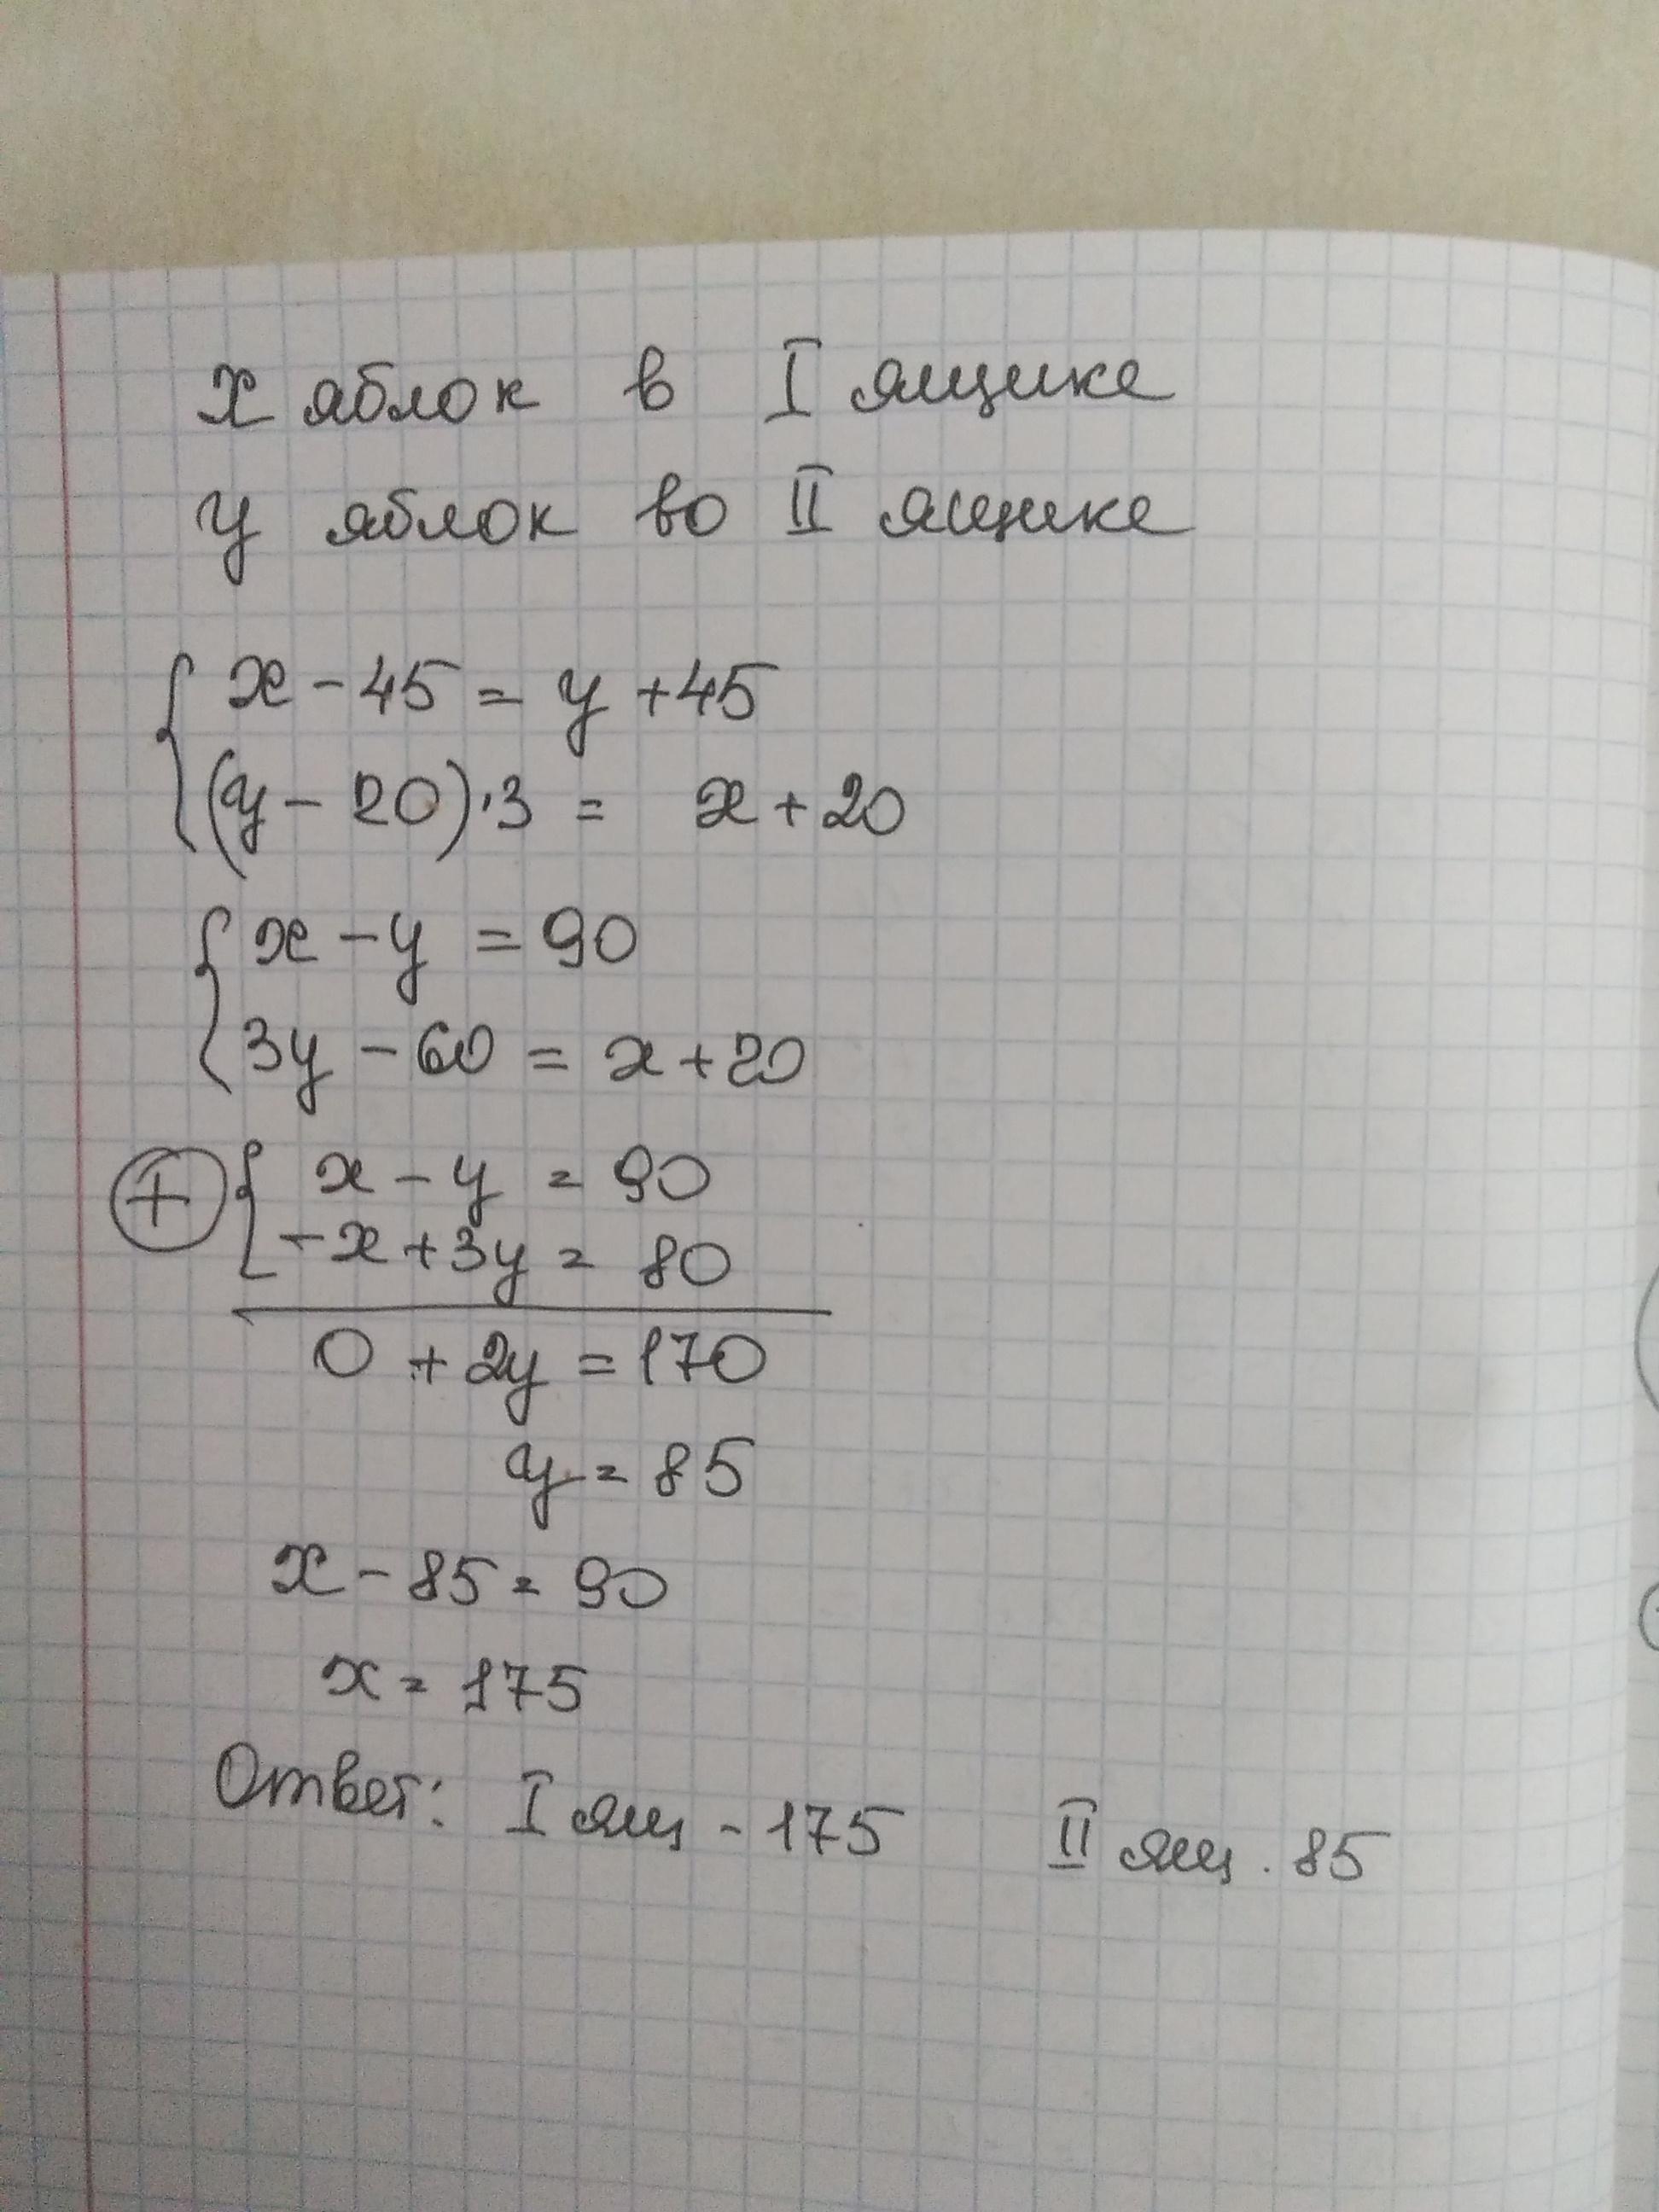 x яблок в I ящике
y яблок во II ящике
x - 45 = y + 45
(y - 20)·3 = x + 20
x - y = 90
3y - 60 = x + 20
+ x - y = 90
-x + 3y = 80
0 + 2y = 170
y = 85
x - 85 = 90
x = 175
Ответ: I ящ - 175 II ящ. 85